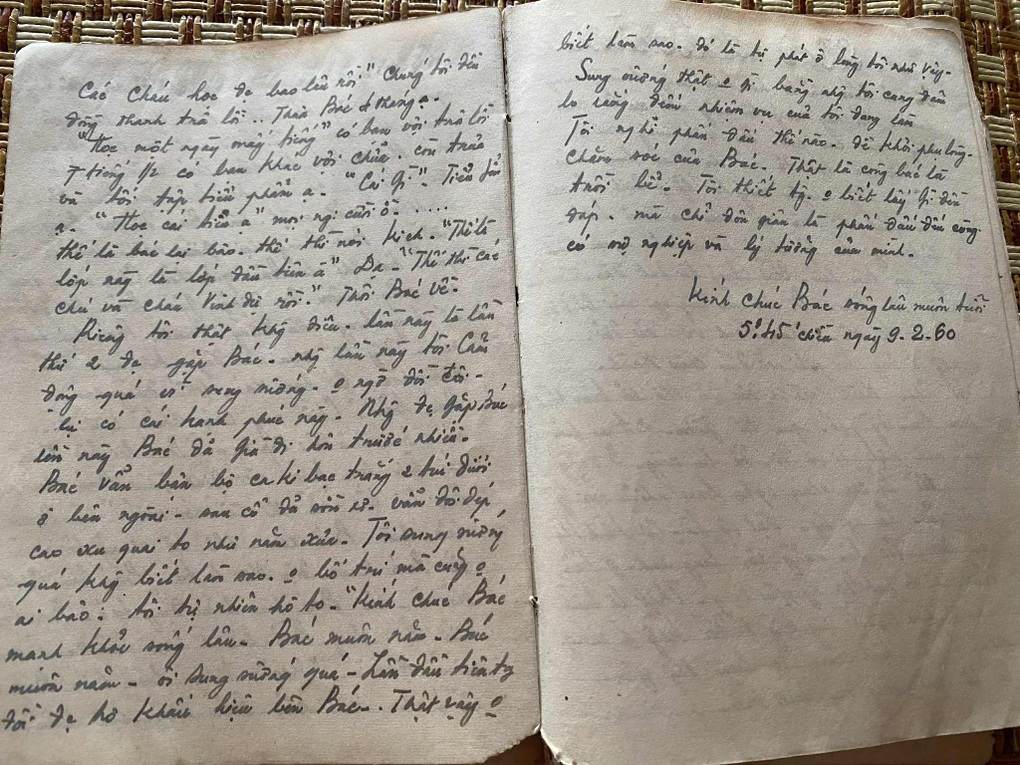 Các cháu học đc bao lâu rồi" Chúng tôi đều
đồng thanh trả lời.. Thưa Bác 4 tháng ạ.
"Học một ngày mấy tiếng" có bạn vội trả lời
7 tiếng 1/2 có bạn khác vội chữa. còn trưa
và tối tập tiểu phẩm ạ. "Cái gì". Tiểu
ạ. "Học cái hiểu ạ" mọi ng cười ồ. .....
thế là bác lại bảo. thế thì nói kịch. "Thế là
lớp này là lớp đầu tiên à" Dạ. "Thế thì các
chú và cháu Vinh dự rồi." Thôi Bác về.
Riêng tôi thật khg điều. lần này là lần
thứ 2 đc gặp Bác. nhg lần này tôi Cảm
động quá vì sung sướng. o ngờ đời tôi.
lại có cái hạnh phúc này. Nhg đc gặp Bác
lần này Bác đã già đi hơn trước nhiều.
Bác vẫn bận bộ ca ki bạc trắng 2 túi dưới
ở bên ngoài. sau cổ đã sờn rồi. vẫn đôi dép
cao xu quai to như năm xưa. Tôi sung sướng
quá khg biết làm sao. o bố trí mà cũng o
ai bảo. tôi tự nhiên hô to. "Kính chúc Bác
mạnh khỏe sống lâu. Bác muôn năm. Bác
muôn năm. ôi sung sướng quá. Lần đầu tiên tg
đời đc hô khẩu hiệu bên Bác.. Thật vậy o
biết làm sao. đó là tự phát ở lòng tôi như vậy.
Sung sướng thật o gì bằng nhg tôi cang
lo rằng điều nhiệm vụ của tôi đang làm
Tôi nghĩ phấn đấu thế nào. để khỏi phụ lòng.
chăm sóc của Bác. Thật là công bác là
trời bể. Tôi thiết tg. o biết lấy gì đền
đáp. mà chỉ đơn giản là phấn đấu đến cùng.
có sự nghiệp và lý tưởng của mình.
Kính chúc Bác sống lâu muôn tuổi
5h45' chiều ngày 9.2.60